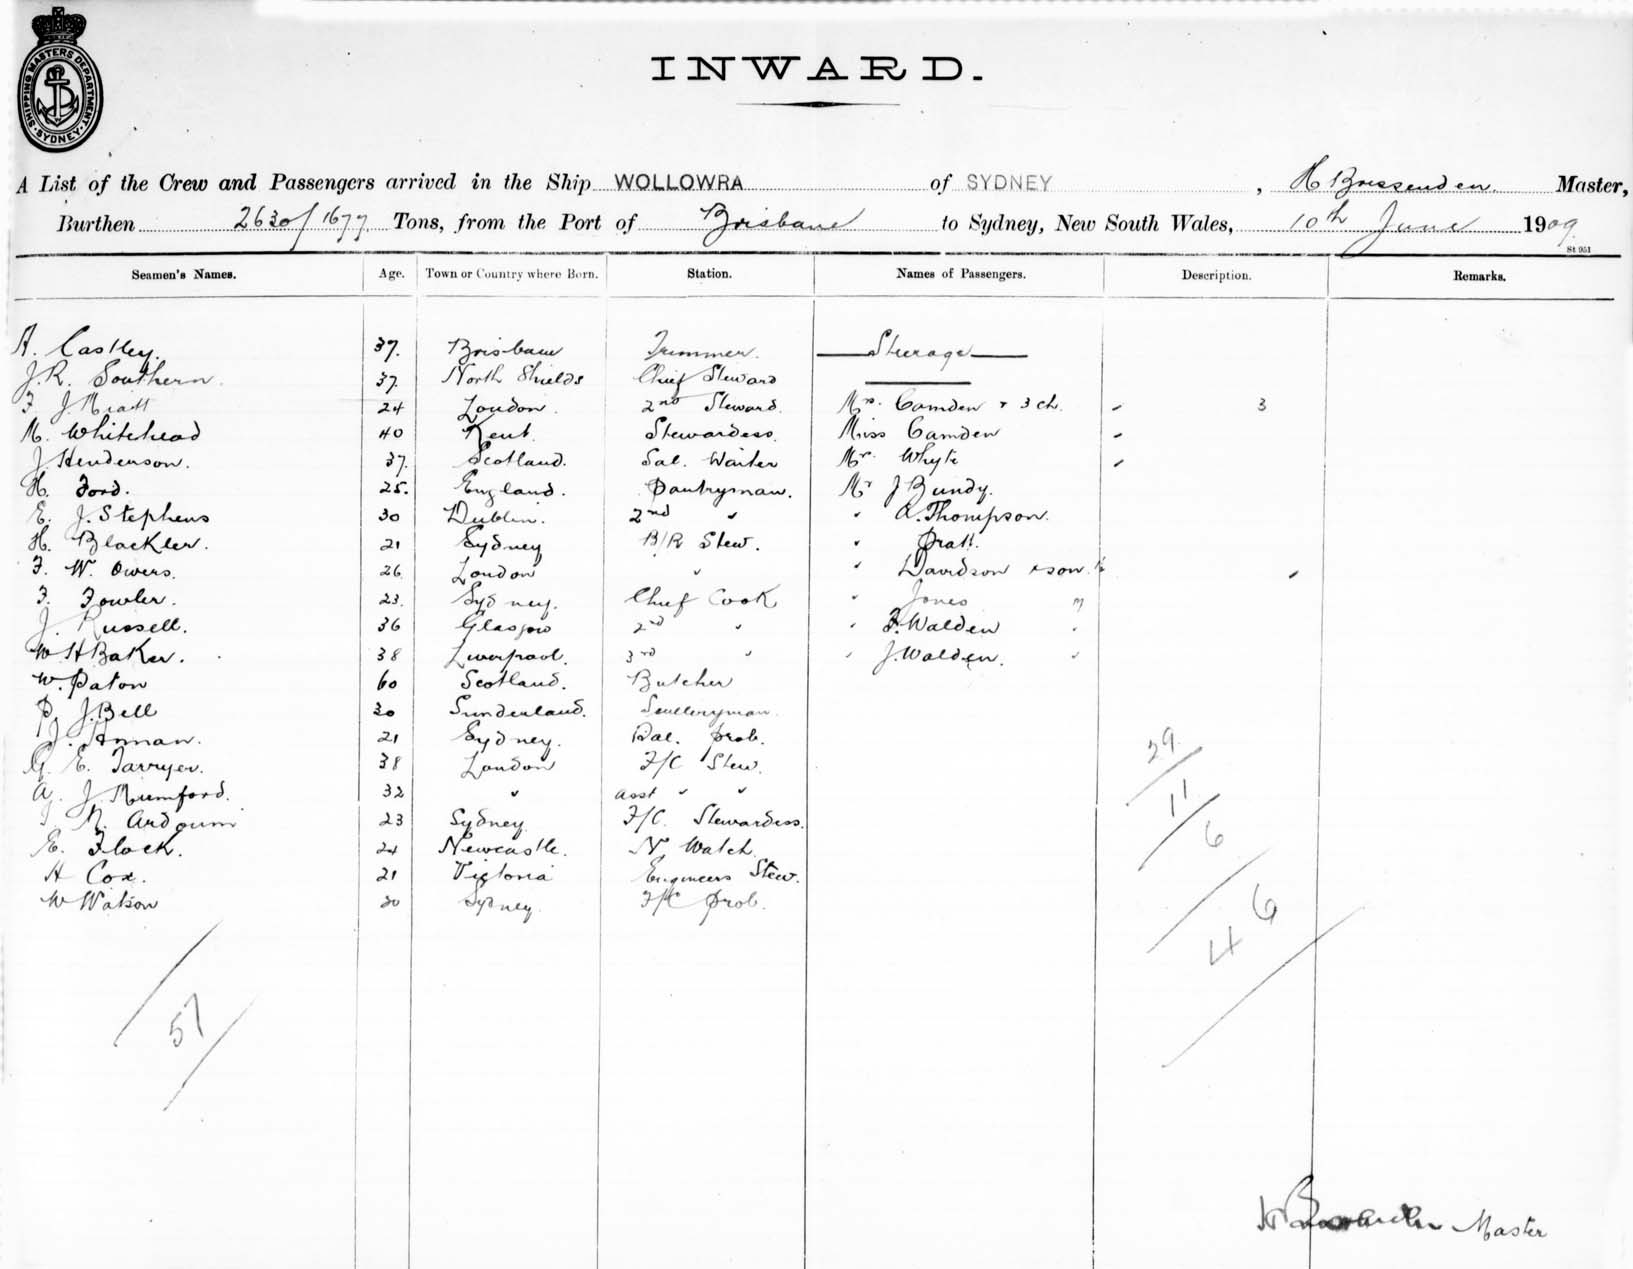 SHIPPING MASTERS DEPARTMENT · SYDNEY ·
INWARD.
A List of the Crew and Passengers arrived in the Ship WOLLOWRA of SYDNEY , H Brissenden Master,
Burthen 2630/1677 Tons, from the Port of Brisbane to Sydney, New South Wales, 10th June 1909
St 951
Seamen's Names. Age. Town or Country where Born. Station. Names of Passengers. Description. Remarks.
A. Castley. 37. Brisbane Trimmer. Steerage
J.R. Southern. 37. North Shields Chief Steward
F J. Miatt 24 London. 2nd Steward. Mrs. Camden + 3 ch. " 3
M. Whitehead 40 Kent. Stewardess. Miss Camden "
J Henderson. 37. Scotland. Sal. Waiter Mr. Whyte "
H. Ford. 25. England. Pantryman. Mr J Bundy.
E. J. Stephens 30 Dublin. 2nd " " A. Thompson.
H. Blackler. 21 Sydney B/R Stew. " Pratt.
F. W. Owers. 26 London " " Davidson + son. "
F. Fowler. 23. Sydney. Chief Cook " Jones "
J. Russell. 36 Glasgow 2nd " " F. Walden "
W H Baker. 38 Liverpool. 3rd " " J. Walden. "
W. Paton 60 Scotland. Butcher
P. J. Bell 30 Sunderland. Sculleryman.
J. Annan. 21 Sydney. Sal. Prob.
G. E. Tarryer. 38 London F/C Stew.
A. J Mumford. 32 " Asst " "
N. Ardouin 23 Sydney F/C. Stewardess.
E. Flock. 24 Newcastle. N. Watch
H Cox. 21 Victoria Engineers Stew.
W Watson 30 Sydney. F/C Prob.
29
11
6
46
57
H Brissenden Master